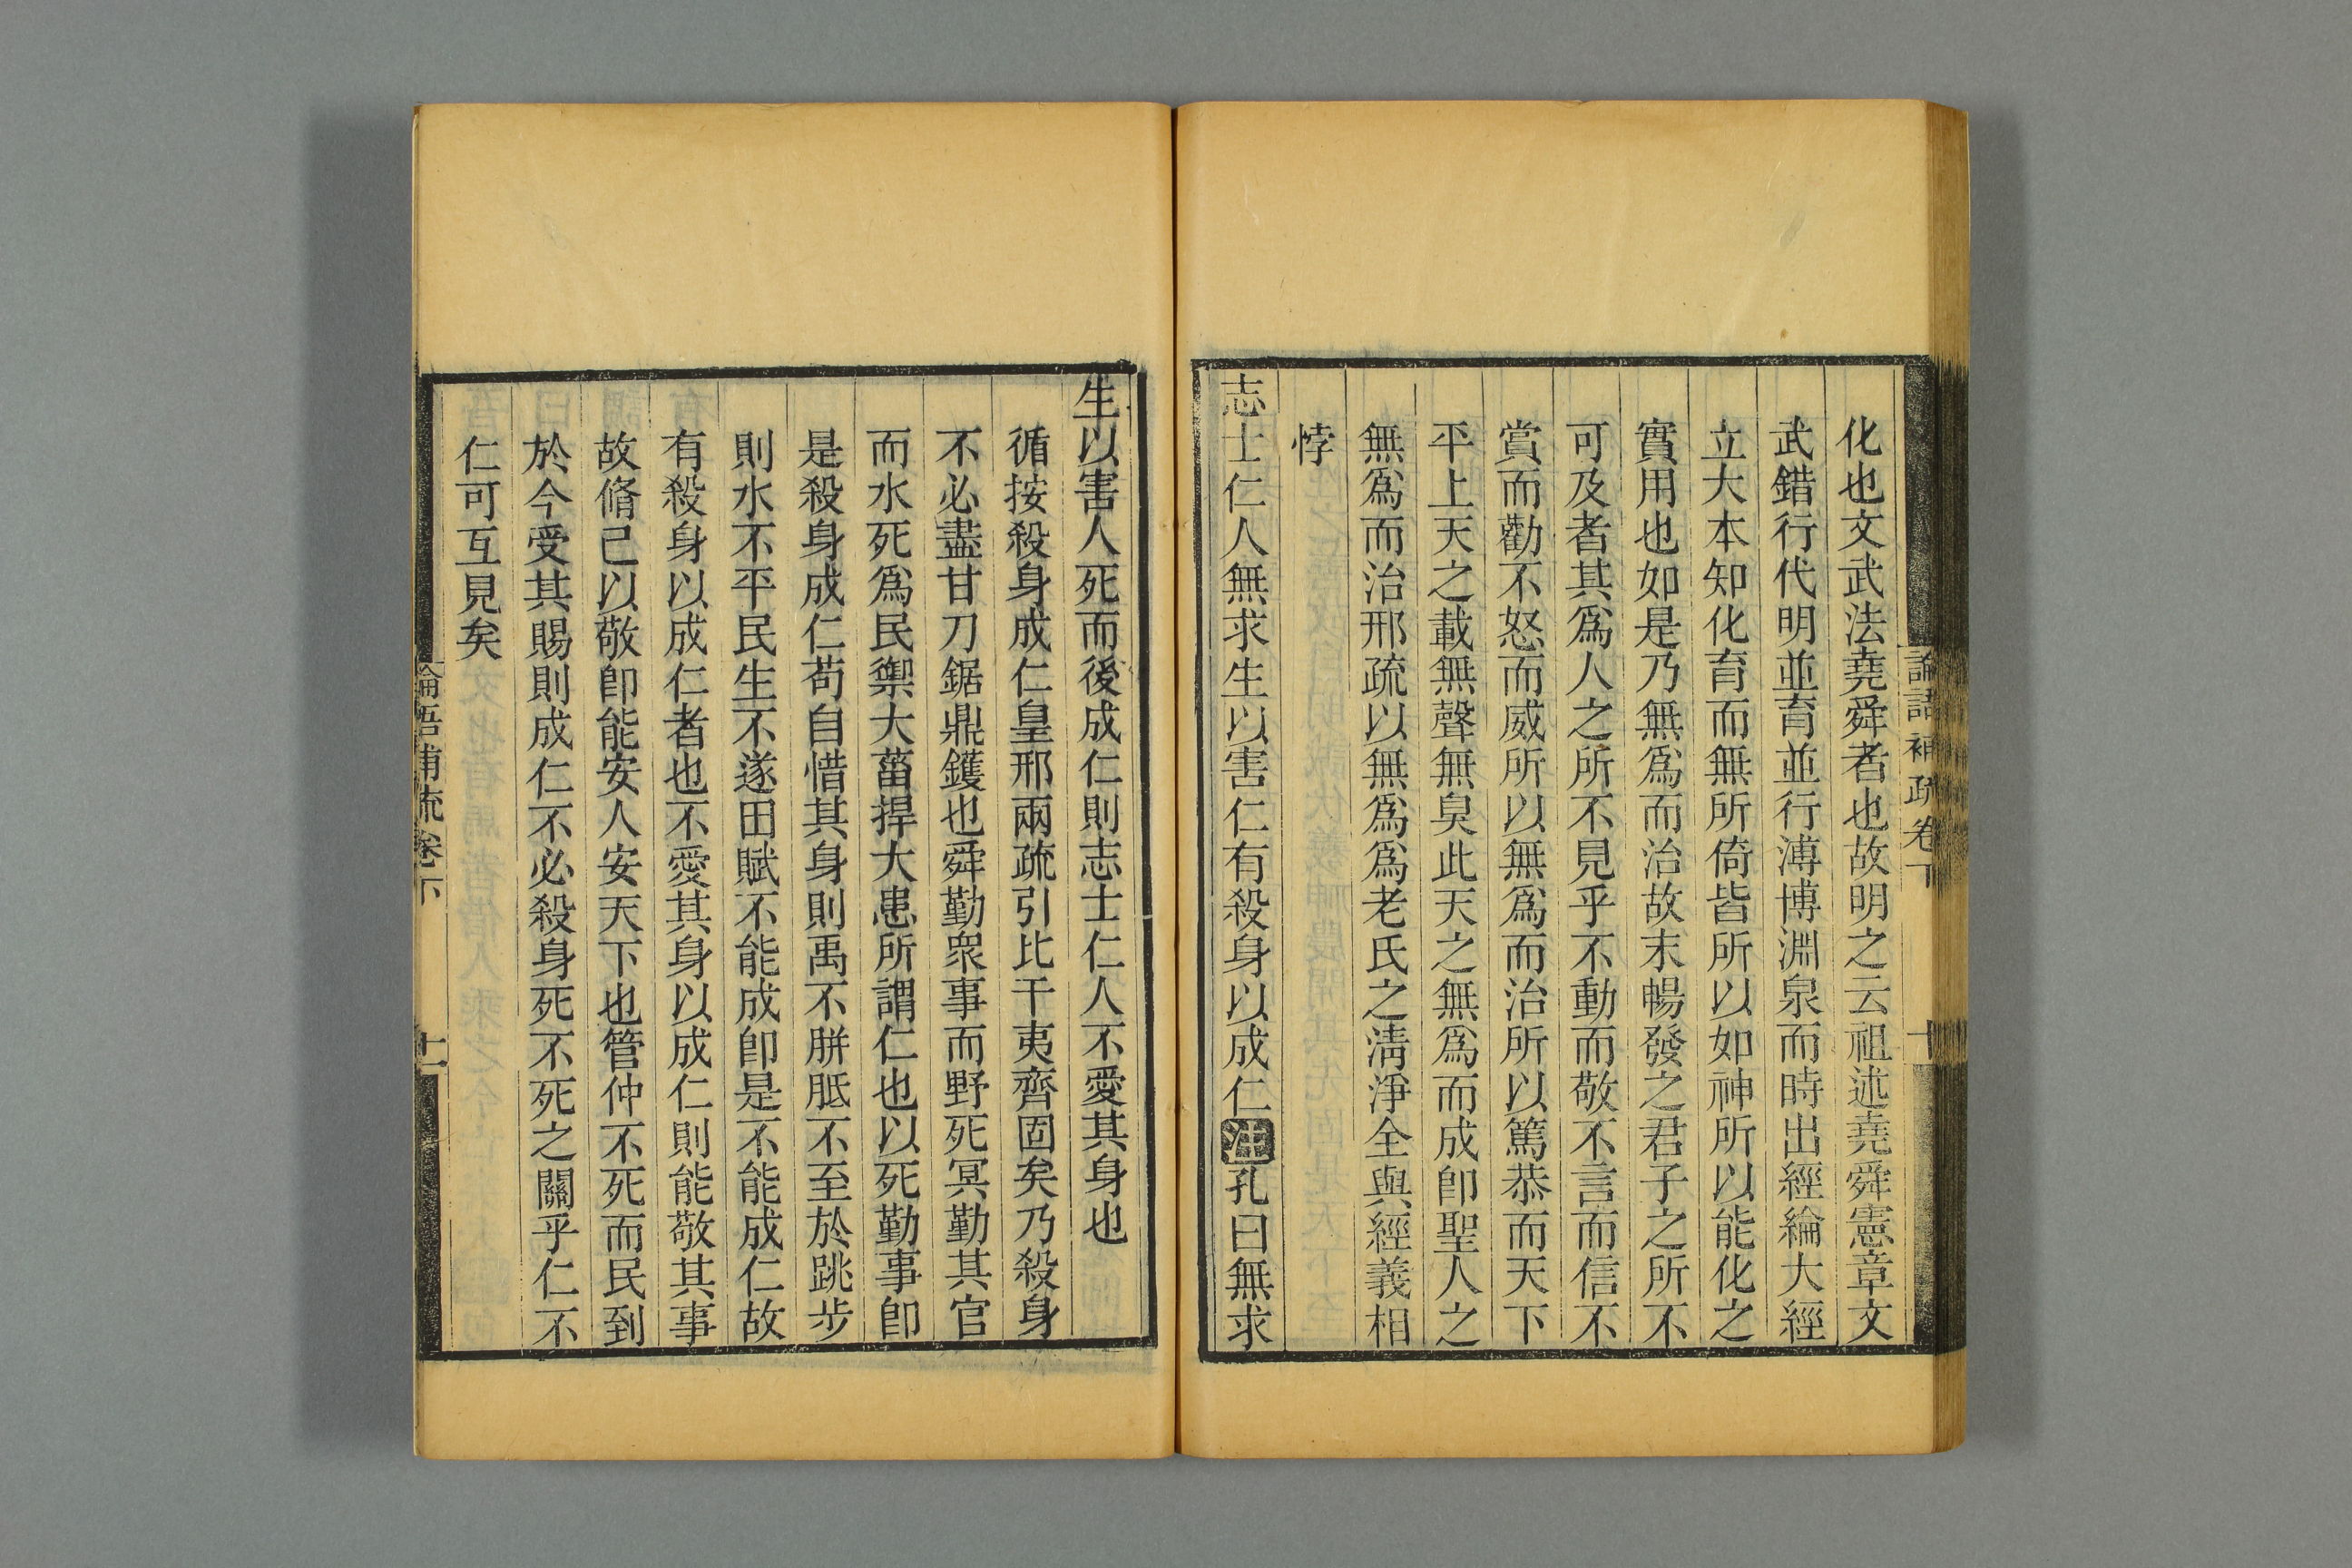 論語補疏卷下
十
化也文武法堯舜者也故明之云祖述堯舜憲章文
武錯行代明並育並行溥博淵泉而時出經綸大經
立大本知化育而無所倚皆所以如神所以能化之
實用也如是乃無爲而治故末暢發之君子之所不
可及者其爲人之所不見乎不動而敬不言而信不
賞而勸不怒而威所以無爲而治所以篤恭而天下
平上天之載無聲無臭此天之無爲而成卽聖人之
無爲而治邢疏以無爲爲老氏之淸淨全與經義相
悖
志士仁人無求生以害仁有殺身以成仁注孔曰無求
生以害人死而後成仁則志士仁人不愛其身也
循按殺身成仁皇邢兩疏引比干夷齊固矣乃殺身
不必盡甘刀鋸鼎鑊也舜勤衆事而野死冥勤其官
而水死爲民禦大菑捍大患所謂仁也以死勤事卽
是殺身成仁苟自惜其身則禹不胼胝不至於跳步
則水不平民生不遂田賦不能成卽是不能成仁故
有殺身以成仁者也不愛其身以成仁則能敬其事
故脩己以敬卽能安人安天下也管仲不死而民到
於今受其賜則成仁不必殺身死不死之關乎仁不
仁可互見矣
論語補疏卷下
十一